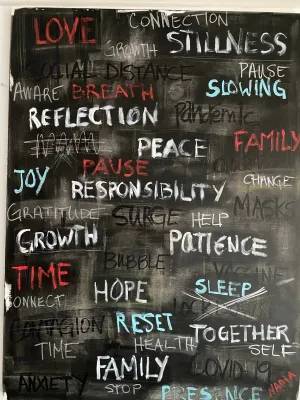 CONNECTION
LOVE
GROWTH STILLNESS
SOCIAL DISTANCE PAUSE
AWARE BREATH SLOWING
REFLECTION Pandemic
PEACE FAMILY
PAUSE
JOY RESPONSIBILITY CHANGE
GRATITUDE SURGE HELP MASKS
GROWTH PATIENCE
BUBBLE
TIME VACCINE
CONNECT HOPE SLEEP
LOCKDOWN
CONTAGION RESET TOGETHER
TIME HEALTH SELF
FAMILY COVID-19
ANXIETY STOP PRESENCE NADIA